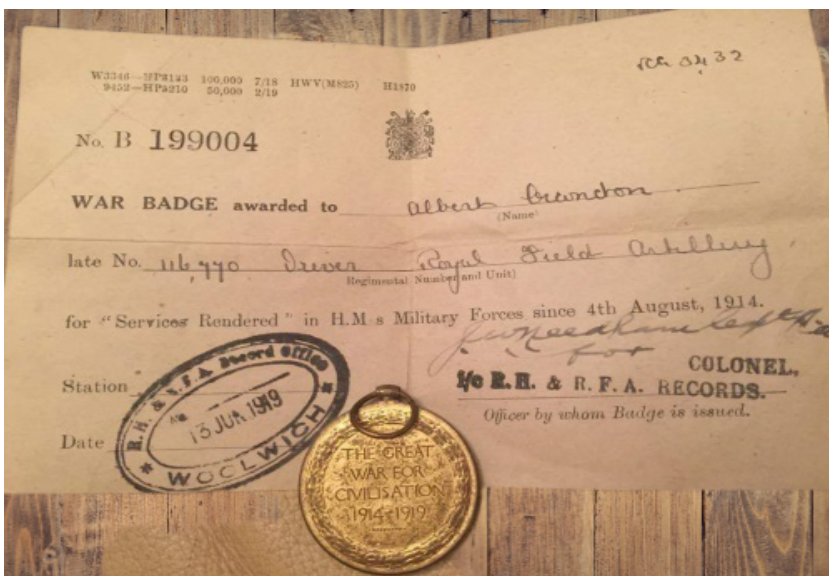 W3346—HP8123 100,000 7/18 HWV(M825) H1870
9452—HP5210 50,000 2/19
No. B 199004
WAR BADGE awarded to Albert Crandon
(Name)
late No. 116,770 Driver Royal Field Artillery
Regimental Number and Unit)
for "Services Rendered" in H.M s Military Forces since 4th August, 1914.
for
COLONEL,
I/c R.H. & R.F.A. RECORDS.
Officer by whom Badge is issued.
Station
Date
R.H. & R.F.A. Record Office
13 JUN 1919
WOOLWICH
THE GREAT
WAR FOR
CIVILISATION
1914-1919